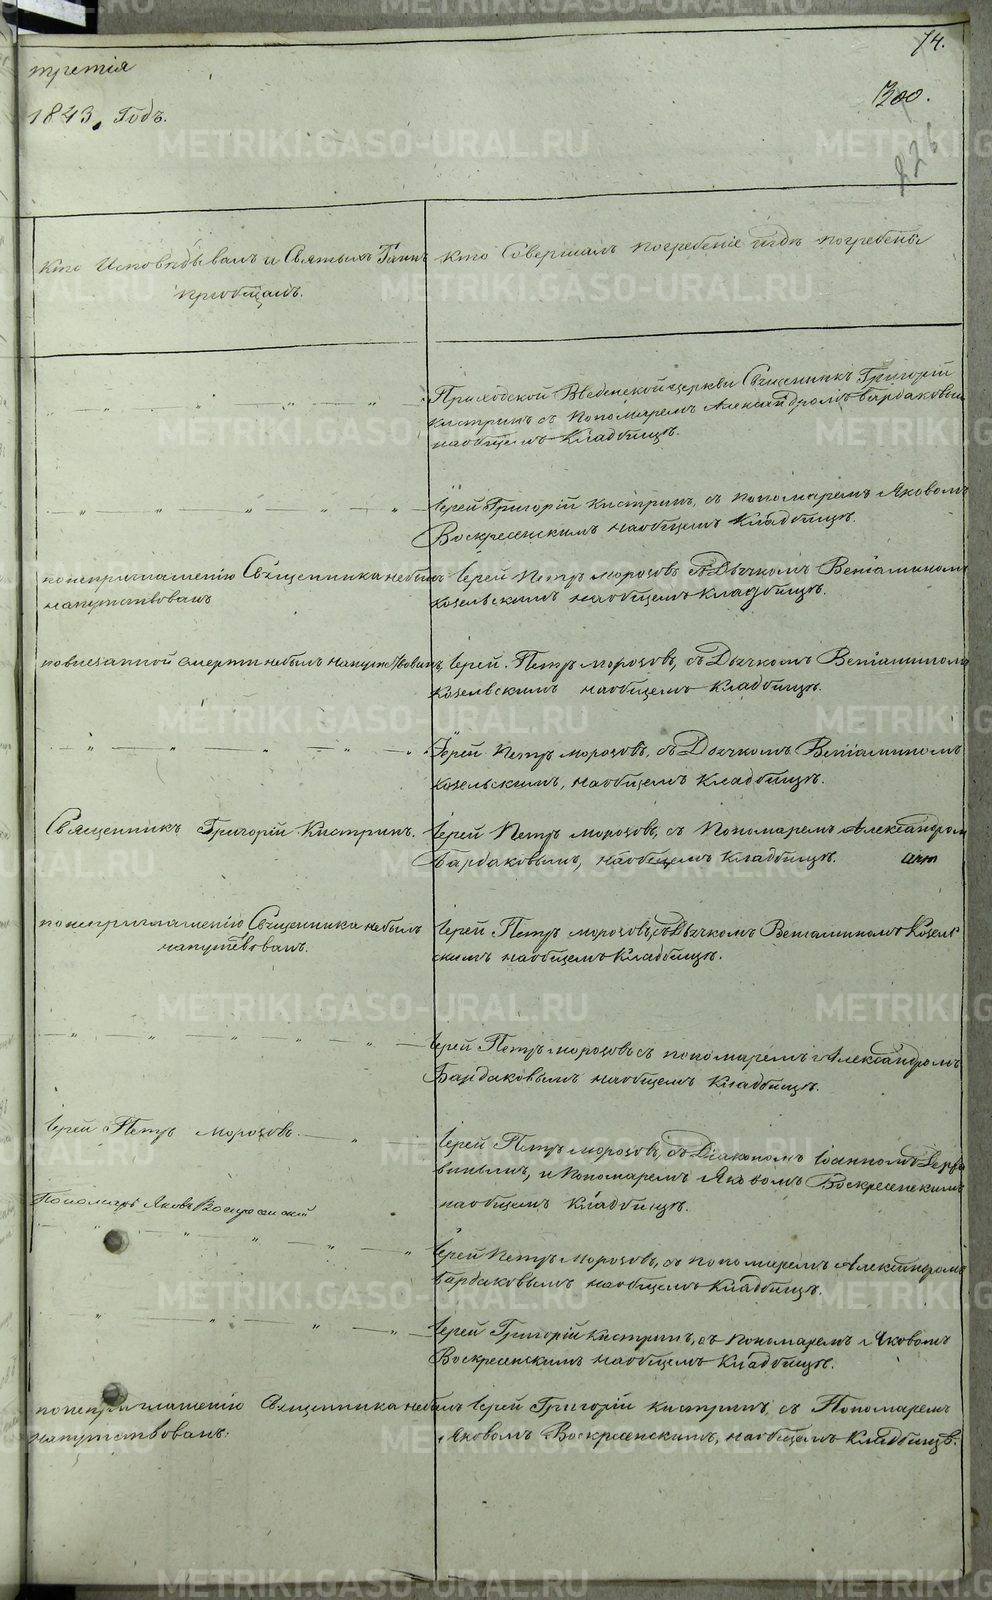 74.
третія
300.
1843, Годъ.
226
Кто Исповѣдывалъ и Святыхъ Таинъ
пріобщалъ.
Кто Совершалъ погребеніе и гдѣ погребены
Приходской Введенской церкви Священникъ Григорій
Кистринъ съ Пономаремъ Александромъ Бардаковым
на общемъ Кладбищѣ.
Іерей Григорій Кистринъ, съ пономаремъ Яковомъ
Воскресенскимъ на общемъ Кладбищѣ.
по неприглашенію Священника небылъ
напутствованъ
Іерей Петръ Морозовъ съ Дьячкомъ Веніаминомъ
Козельскимъ на общемъ Кладбищѣ.
по внезапной смерти небылъ напутствованъ
Іерей Петръ Морозовъ, съ Дьячкомъ Веніаминомъ
Козельскимъ на общемъ Кладбищѣ.
Іерей Петръ Морозовъ, съ Дьячкомъ Веніаминомъ
Козельскимъ, на общемъ Кладбищѣ.
Священникъ Григорій Кистринъ.
Іерей Петръ Морозовъ, съ Пономаремъ Александром
Бардаковымъ, на общемъ Кладбищѣ.
по неприглашенію Священника небылъ
напутвованъ.
Іерей Петръ Морозовъ, съ Дьячкомъ Веніаминомъ Козель
скимъ на общемъ Кладбищѣ.
Іерей Петръ Морозовъ съ пономаремъ Александромъ
Бардаковымъ на общемъ Кладбищѣ.
Іерей Петръ Морозовъ.
Іерей Петръ Морозовъ, съ Діакономъ Іоанномъ
и Пономаремъ Яковомъ Воскресенскимъ
на общемъ Кладбищѣ.
Пономарь Яковъ Воскресенский
Іерей Петръ Морозовъ, съ пономаремъ Александромъ
Бардаковымъ на общемъ Кладбищѣ.
Іерей Григорій Кистринъ, съ Пономаремъ Яковомъ
Воскресенскимъ на общемъ Кладбищѣ.
по неприглашенію Священника небылъ
напутствованъ.
Іерей Григорій Кистринъ, съ Пономаремъ
Яковомъ Воскресенскимъ, на общемъ Кладбищѣ.
METRIKI.GASO-URAL.RU